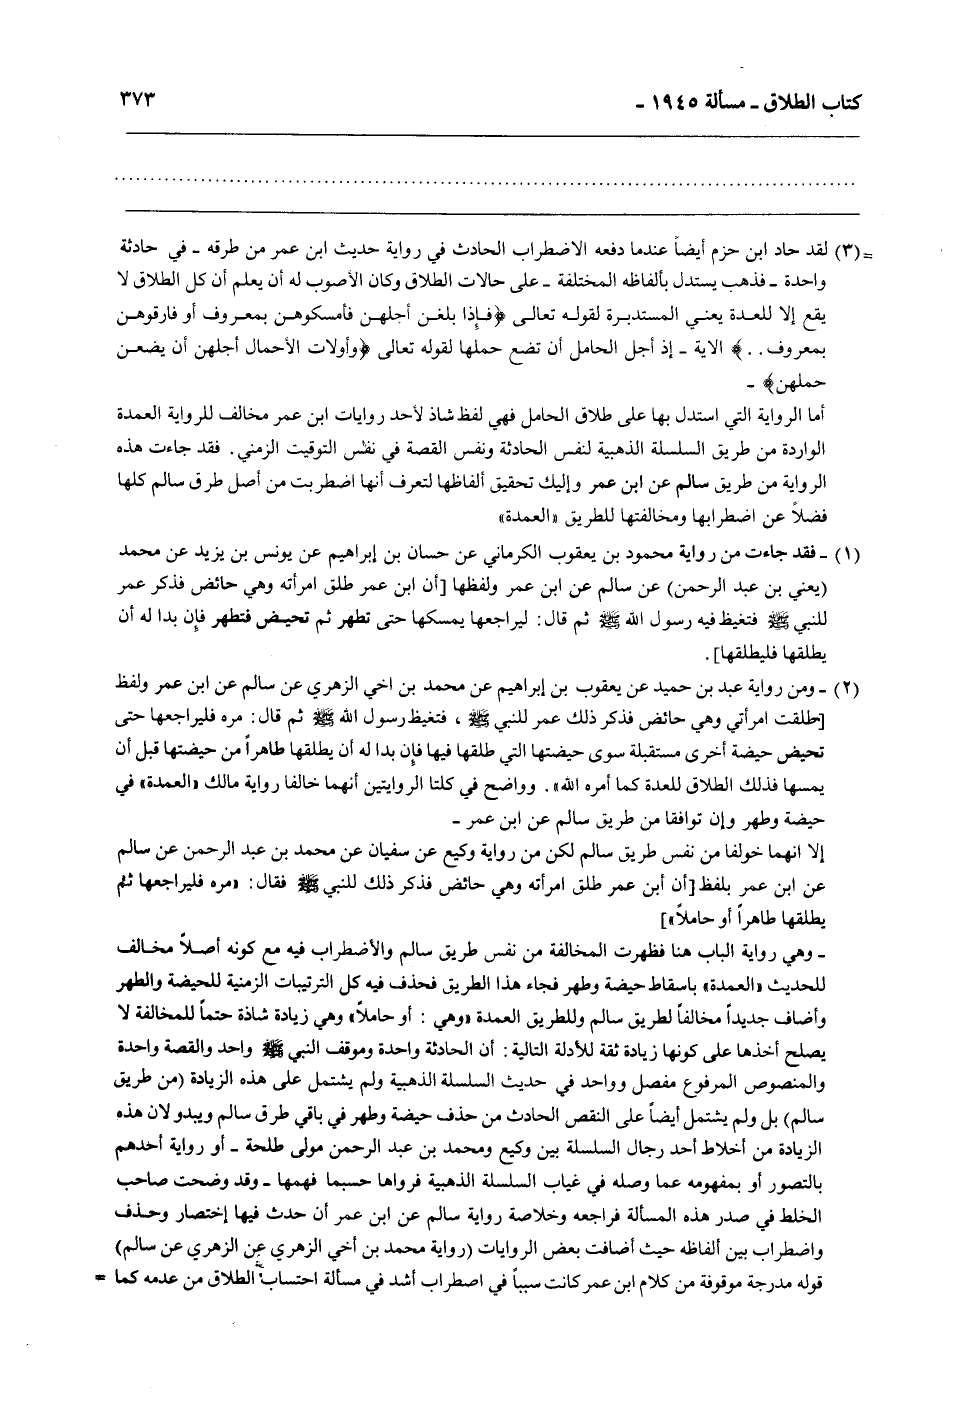 كتاب الطلاق ـ مسألة ١٩٤٥ ـ ٣٧٣
=(٣) لقد حاد ابن حزم أيضاً عندما دفعه الاضطراب الحادث في رواية حديث ابن عمر من طرقه ـ في حادثة
واحدة ـ فذهب يستدل بألفاظه المختلفة ـ على حالات الطلاق وكان الأصوب له أن يعلم أن كل الطلاق لا
يقع إلا للعدة يعني المستدبرة لقوله تعالى ﴿فإذا بلغن أجلهن فأمسكوهن بمعروف أو فارقوهن
بمعروف..﴾ الاية ـ إذ أجل الحامل أن تضع حملها لقوله تعالى ﴿وأولات الأحمال أجلهن أن يضعن
حملهن﴾ ـ
أما الرواية التي استدل بها على طلاق الحامل فهي لفظ شاذ لأحد روايات ابن عمر مخالف للرواية العمدة
الواردة من طريق السلسلة الذهبية لنفس الحادثة ونفس القصة في نفس التوقيت الزمني. فقد جاءت هذه
الرواية من طريق سالم عن ابن عمر وإليك تحقيق ألفاظها لتعرف أنها اضطربت من أصل طرق سالم كلها
فضلاً عن اضطرابها ومخالفتها للطريق «العمدة»
(١) ـ فقد جاءت من رواية محمود بن يعقوب الكرماني عن حسان بن إبراهيم عن يونس بن يزيد عن محمد
(يعني بن عبد الرحمن) عن سالم عن ابن عمر ولفظها [أن ابن عمر طلق امرأته وهي حائض فذكر عمر
للنبي ﷺ فتغيظ فيه رسول الله ﷺ ثم قال: ليراجعها يمسكها حتى تطهر ثم تحيض فتطهر فإن بدا له أن
يطلقها فليطلقها].
(٢) ـ ومن رواية عبد بن حميد عن يعقوب بن إبراهيم عن محمد بن اخي الزهري عن سالم عن ابن عمر ولفظ
[طلقت امرأتي وهي حائض فذكر ذلك عمر للنبي ﷺ، فتغيظ رسول الله ﷺ ثم قال: مره فليراجعها حتى
تحيض حيضة أخرى مستقبلة سوى حيضتها التي طلقها فيها فإن بدا له أن يطلقها طاهراً من حيضتها قبل أن
يمسها فذلك الطلاق للعدة كما أمره الله». وواضح في كلتا الروايتين أنهما خالفا رواية مالك «العمدة» في
حيضة وطهر وإن توافقا من طريق سالم عن ابن عمر ـ
إلا انهما خولفا من نفس طريق سالم لكن من رواية وكيع عن سفيان عن محمد بن عبد الرحمن عن سالم
عن ابن عمر بلفظ [أن أبن عمر طلق امرأته وهي حائض فذكر ذلك للنبي ﷺ فقال: «مره فليراجعها ثم
يطلقها طاهراً أو حاملاً»]
ـ وهي رواية الباب هنا فظهرت المخالفة من نفس طريق سالم والأضطراب فيه مع كونه أصلاً مخالف
للحديث «العمدة» باسقاط حيضة وطهر فجاء هذا الطريق فحذف فيه كل الترتيبات الزمنية للحيضة والطهر
وأضاف جديداً مخالفاً لطريق سالم وللطريق العمدة «وهي : أو حاملاً» وهي زيادة شاذة حتماً للمخالفة لا
يصلح أخذها على كونها زيادة ثقة للأدلة التالية: أن الحادثة واحدة وموقف النبي ﷺ واحد والقصة واحدة
والمنصوص المرفوع مفصل وواحد في حديث السلسلة الذهبية ولم يشتمل على هذه الزيادة (من طريق
سالم) بل ولم يشتمل أيضاً على النقص الحادث من حذف حيضة وطهر في باقي طرق سالم ويبدو لان هذه
الزيادة من أخلاط أحد رجال السلسلة بين وكيع ومحمد بن عبد الرحمن مولى طلحة ـ أو رواية أحدهم
بالتصور أو بمفهومه عما وصله في غياب السلسلة الذهبية فرواها حسبما فهمها ـ وقد وضحت صاحب
الخلط في صدر هذه المسألة فراجعه وخلاصة رواية سالم عن ابن عمر أن حدث فيها إختصار وحذف
واضطراب بين ألفاظه حيث أضافت بعض الروايات (رواية محمد بن أخي الزهري عن الزهري عن سالم)
قوله مدرجة موقوفة من كلام ابن عمر كانت سبباً في اصطراب أشد في مسألة احتساب الطلاق من عدمه كما =